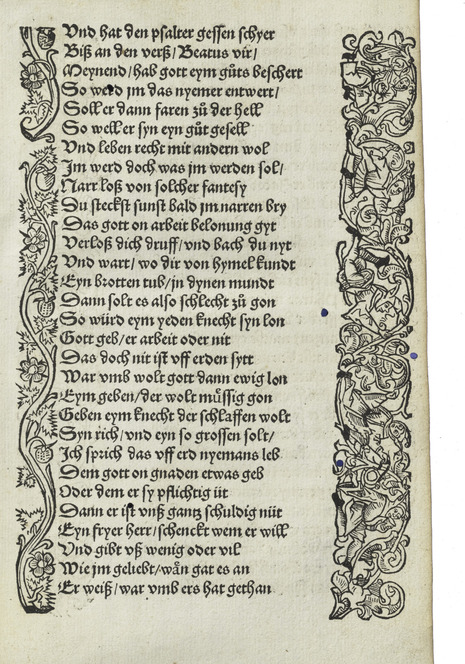 Vnd hat den psalter gessen schyer
Biß an den verß/Beatus vir/
Meynend/hab gott eym gůts beschert
So werd jm das nyemer entwert/
Soll er dann faren zů der hell
So well er syn eyn gůt gesell
Vnd leben recht mit andern wol
Im werd doch was jm werden sol/
Narr loß von solcher fantesy
Du steckst sunst bald jm narren bry
Das gott on arbeit belonung gyt
Verloß dich druff/vnd bach du nyt
Vnd wart/wo dir von hymel kundt
Eyn brotten tub/in dynen mundt
Dann solt es also schlecht zů gon
So würd eym yeden knecht syn lon
Gott geb/er arbeit oder nit
Das doch nit ist vff erden sytt
War vmb wolt gott dann ewig lon
Eym geben/der wolt müssig gon
Geben eym knecht der schlaffen wolt
Syn rich/vnd eyn so grossen solt/
Ich sprich das vff erd nyemans leb
Dem gott on gnaden etwas geb
Oder dem er sy pflichtig üt
Dann er ist vnß gantz schuldig nüt
Eyn fryer herr/schenckt wem er will
Vnd gibt vß wenig oder vil
Wie jm geliebt/wån gat es an
Er weiß/war vmb ers hat gethan